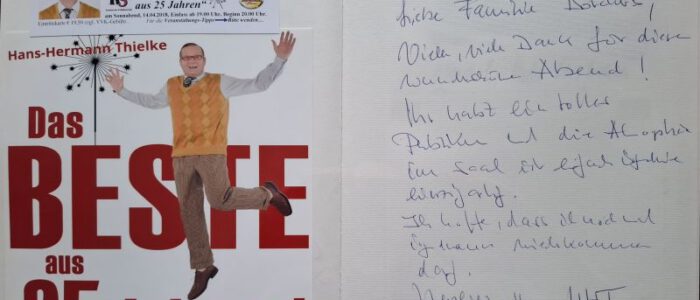 aus 25 Jahren"
am Sonnabend, 14.04.2018, Einlass ab 19.00 Uhr, Beginn 20.00 Uhr.
Hans-Hermann Thielke
Das
BESTE
aus
Liebe Familie
Viele, viele Dank für diesen
Abend!
Ihr habt ein tolles
Publikum und die Atmosphäre
im Saal ist einfach
einzigartig.
Ich hoffe, dass ich noch mal
wiederkommen
darf.